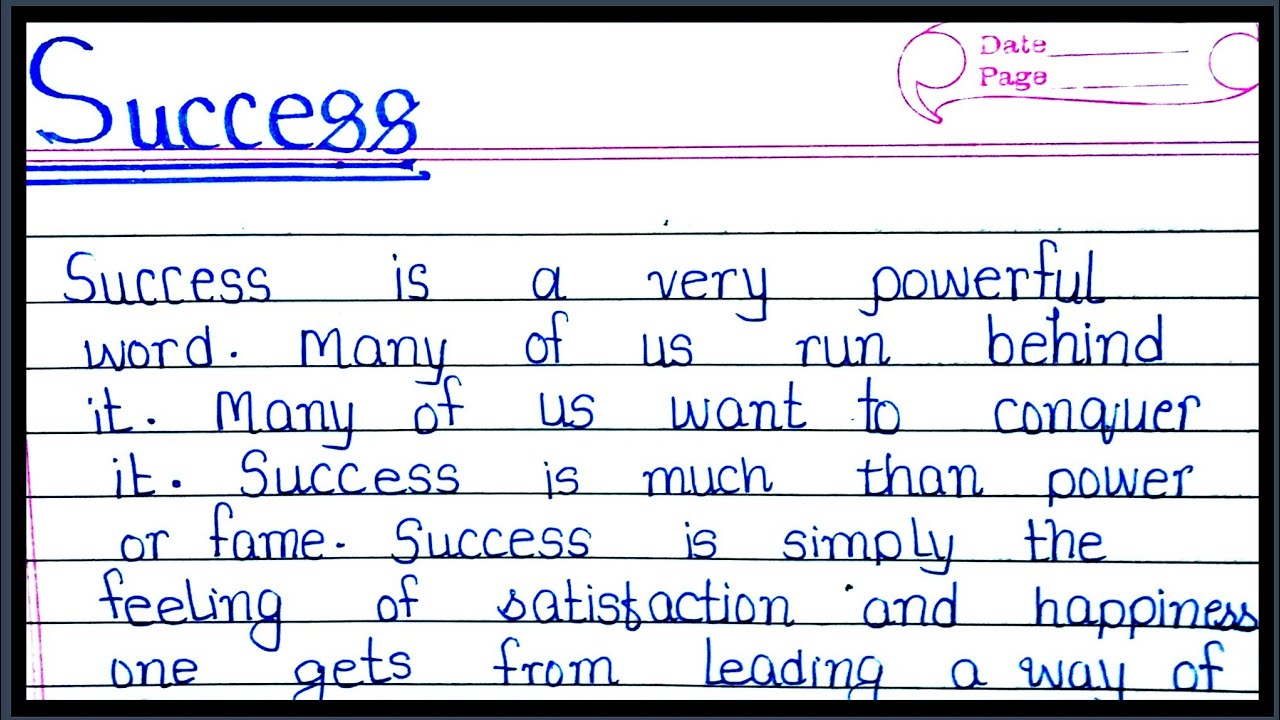 Success
Date
Page
Success is a very powerful
word. Many of us run behind
it. Many of us want to conquer
it. Success is much than power
or fame. Success is simply the
feeling of satisfaction and happiness
one gets from leading a way of